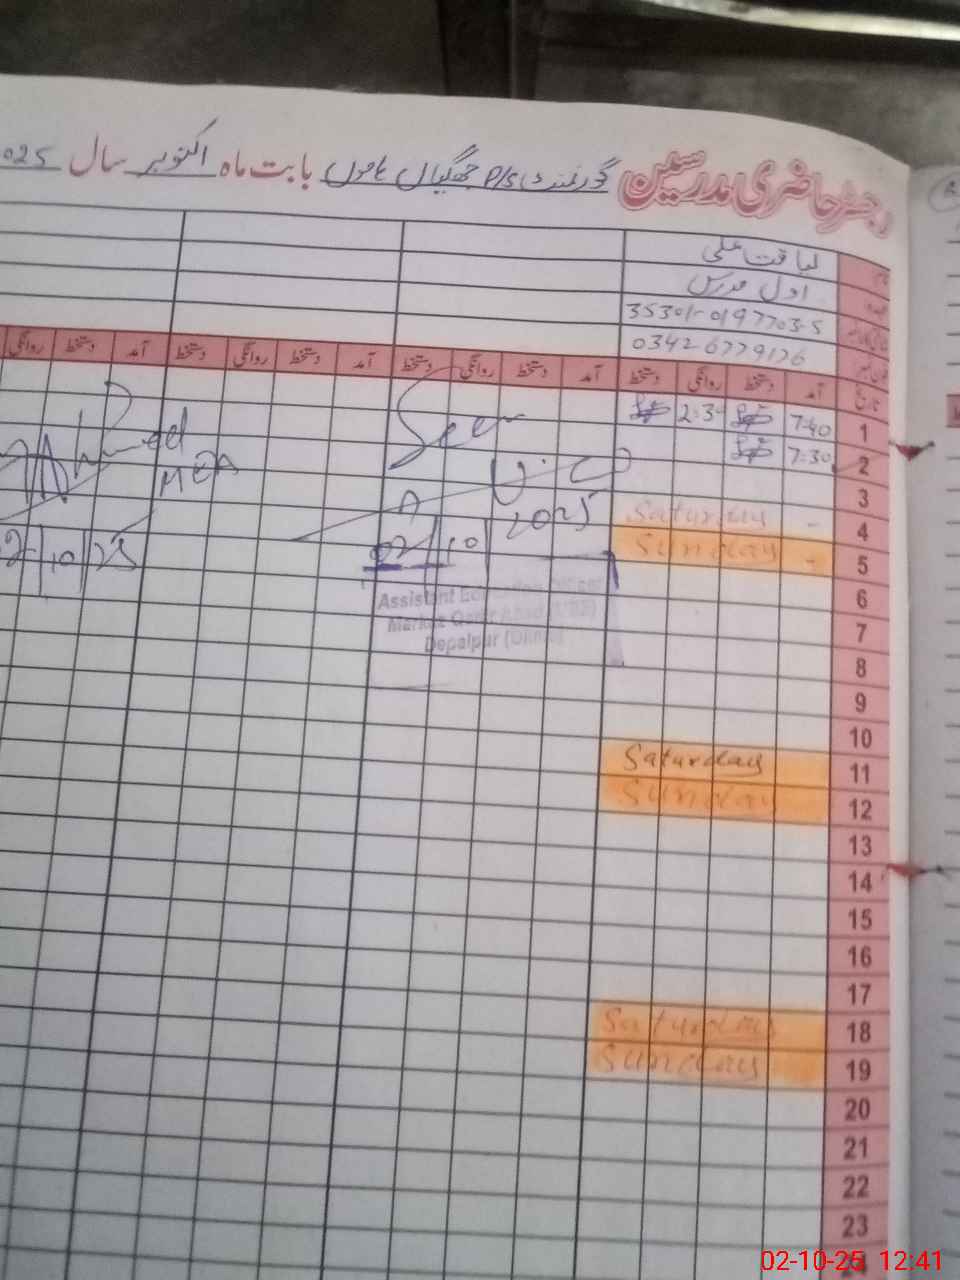 رجسٹر حاضری مدرسین گورنمنٹ P/S جھگیاں ماموں بابت ماہ اکتوبر سال 2025
نام لیاقت علی
عہدہ اول مدرس
35301-0197703-5
03426779176
تاریخ آمد دستخط روانگی دستخط آمد دستخط روانگی دستخط آمد دستخط روانگی دستخط آمد دستخط روانگی
1 7:40 2:30
2 7:30
3
4 Saturday -
5 Sunday -
6
7
8
9
10
11 Saturday
12 Sunday
13
14
15
16
17
18 Saturday
19 Sunday
20
21
22
23
Seen
02/10/2025
Assistant Education Officer
Depalpur (Okara)
Ahmed
MEA
02/10/25
02-10-25 12:41